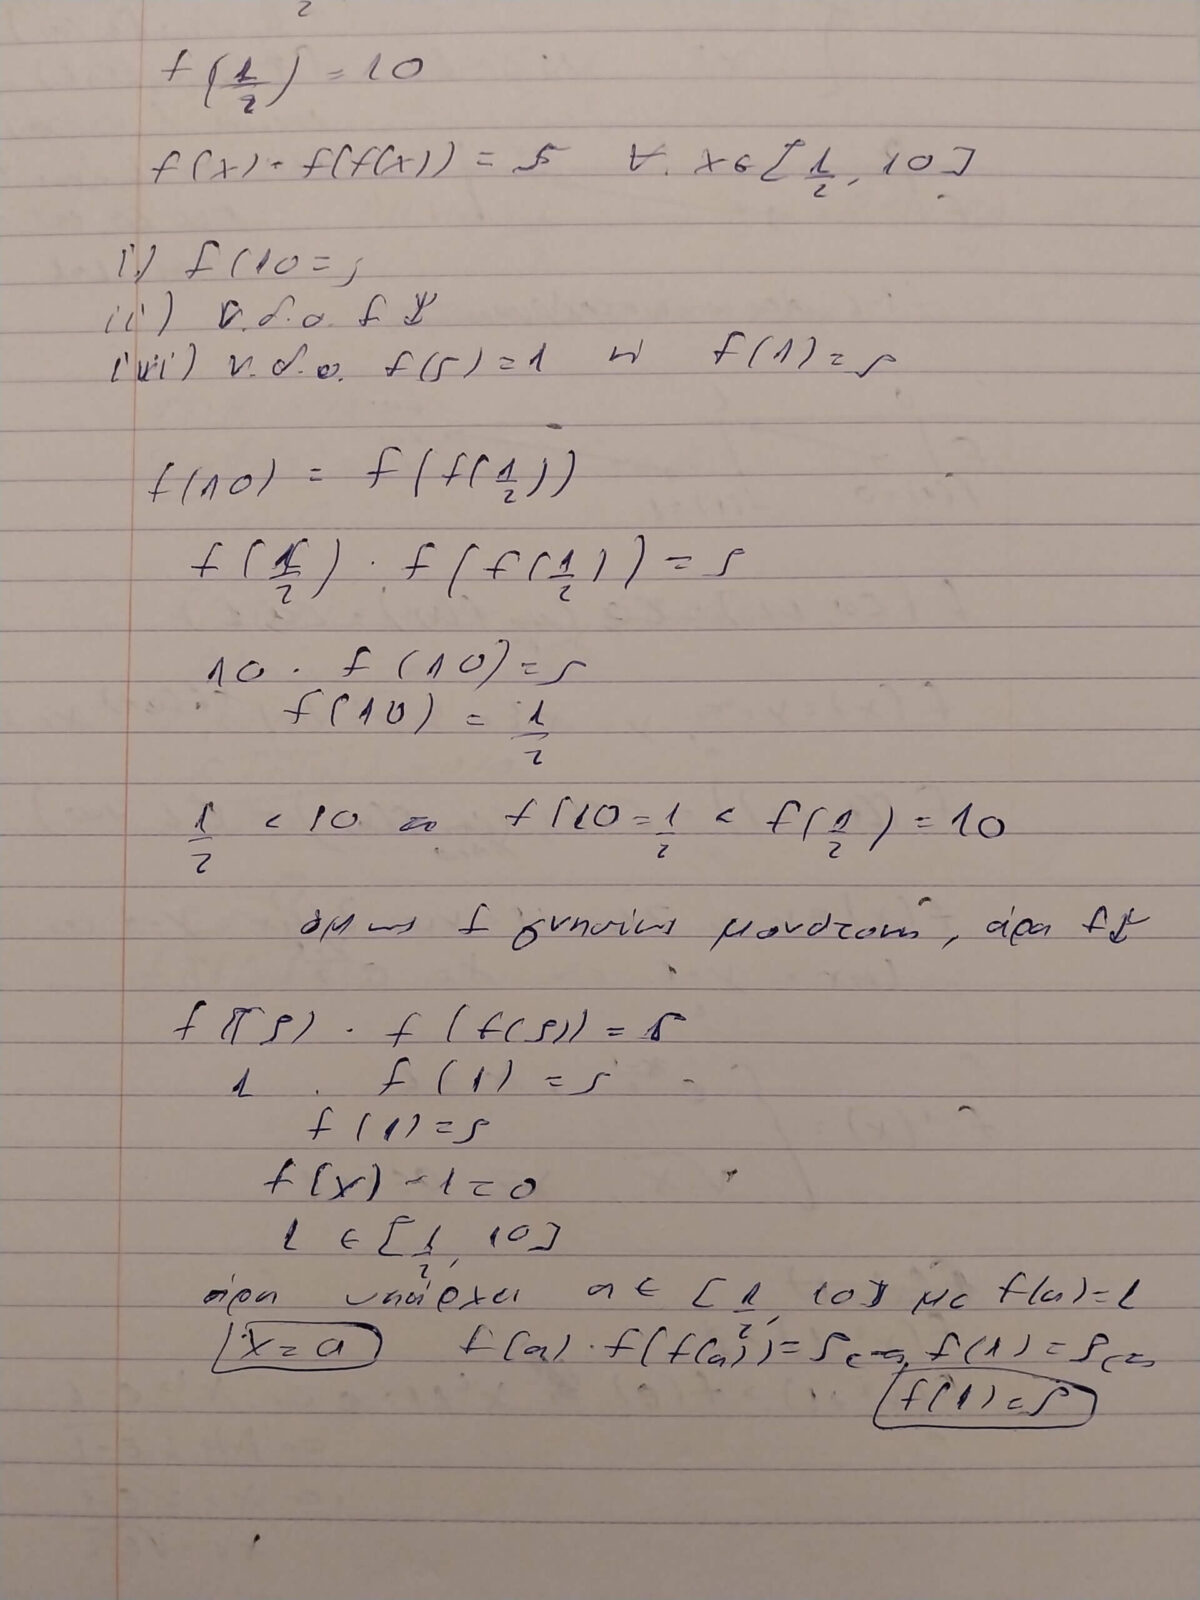 2
f(1/2) = 10
f(x) · f(f(x)) = 5 ∀ x ∈ [1/2, 10]
i) f(10 = ;
ii) ν.δ.ο. f ↓
iii) ν.δ.ο. f(5) = 1 ή f(1) = 5
f(10) = f(f(1/2))
f(1/2) · f(f(1/2)) = 5
10 · f(10) = 5
f(10) = 1/2
1/2 < 10 ⇔ f(10 = 1/2 < f(1/2) = 10
όμως f γνησίως μονότονη, άρα f↓
f(5) · f(f(5)) = 5
1 · f(1) = 5
f(1) = 5
f(x) - 1 = 0
1 ∈ [1/2, 10]
άρα υπάρχει a ∈ [1/2, 10] με f(a) = 1
x = a f(a) · f(f(a)) = 5 ⇔ f(1) = 5 ⇔
f(1) = 5